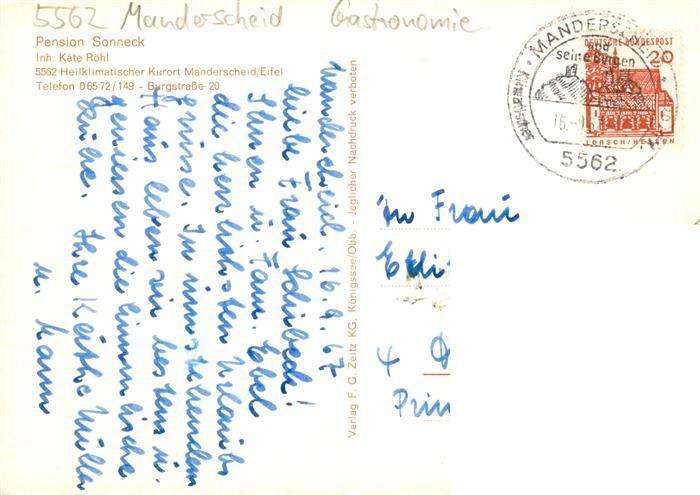 5562 Manderscheid Gastronomie
Pension Sonneck
Inh. Käte Röhl
5562 Heilklimatischer Kurort Manderscheid/Eifel
Telefon 06572/149 - Burgstraße 20
Manderscheid, 16.9.67
Liebe Frau
Ihnen u. Fam.
die herzlichsten Urlaubs
grüsse. In umstehendem
Haus leben wir bestens u.
geniessen die
Küche. Ihre Käthe Müller
u. Mann
Verlag F. G. Zeitz KG, Königssee/Obb. - Jeglicher Nachdruck verboten
MANDERSCHEID
und
seine Burgen
16.-9
5562
DEUTSCHE BUNDESPOST
20
LORSCH/HESSEN
An Frau
4